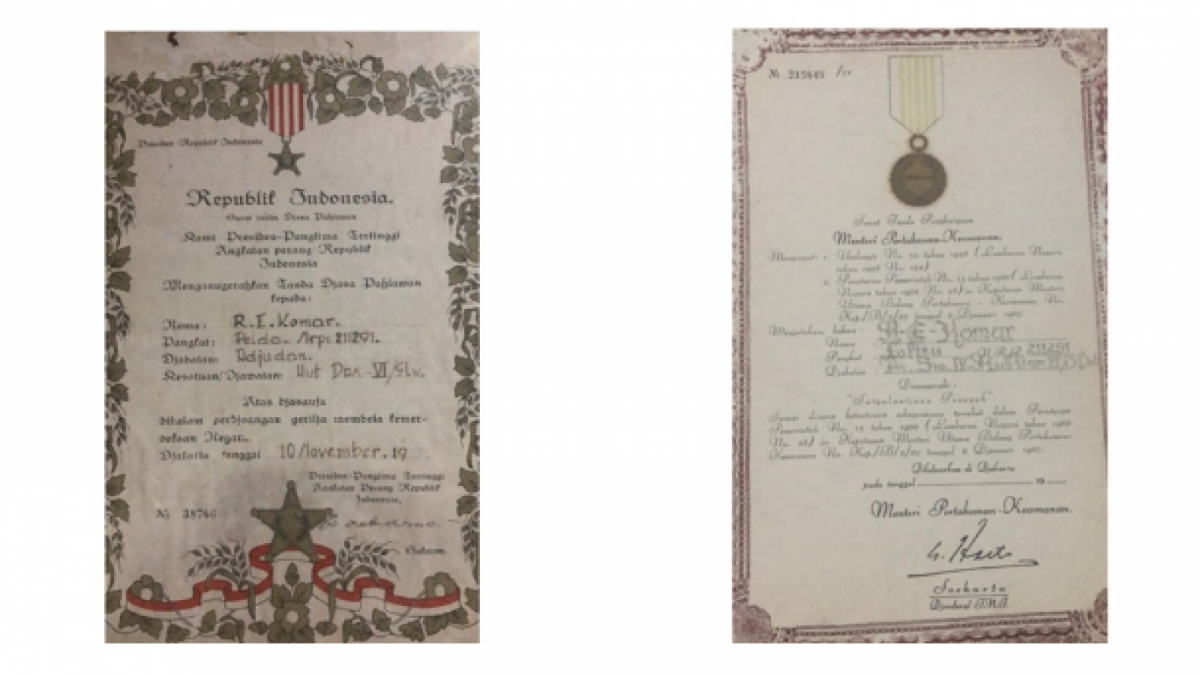 Presiden Republik Indonesia
Republik Indonesia.
Surat tanda Djasa Pahlawan
Kami Presiden-Panglima Tertinggi
Angkatan perang Republik
Indonesia
Menganugerahkan Tanda Djasa Pahlawan
kepada:
Nama: R.E. Komar.
Pangkat: Pelda. Nrp: 211291.
Djabatan: Adjudan.
Kesatuan/Djawatan: Hut Dan-VI/Slw.
Atas djasanja
didalam perdjoangan gerilja membela kemer-
dekaan Negara.
Djakarta tanggal 10 November. 19
Presiden-Panglima Tertinggi
Angkatan Perang Republik
Indonesia,
№ 38766
Sukarno.
№ 215845
Surat Tanda Penghargaan
Menteri Pertahanan-Keamanan.
Mengingat: 1. Undang2 No. 70 tahun 1958 (Lembaran Negara
tahun 1958 No.
2. Peraturan Pemerintah No. tahun (Lembaran
Negara tahun No. Keputusan Menteri
Utama Bidang Pertahanan - Keamanan No.
Kep./B/ tanggal 6 Djanuari 1967.
Menjatakan bahwa: R-E-Komar
Nama
Pangkat NRP 211291
Djabatan
Dianugerahi:
"Satyalantjana Penegak"
Sesuai dengan ketentuan2 sebagaimana termaktub dalam Peraturan
Pemerintah No. tahun (Lembaran Negara tahun
No. Keputusan Menteri Utama Bidang Pertahanan-
Keamanan No. Kep./B/ tanggal 6 Djanuari 1967.
Dikeluarkan di Djakarta
pada tanggal 19
Menteri Pertahanan-Keamanan.
Soeharto
Djenderal T.N.I.